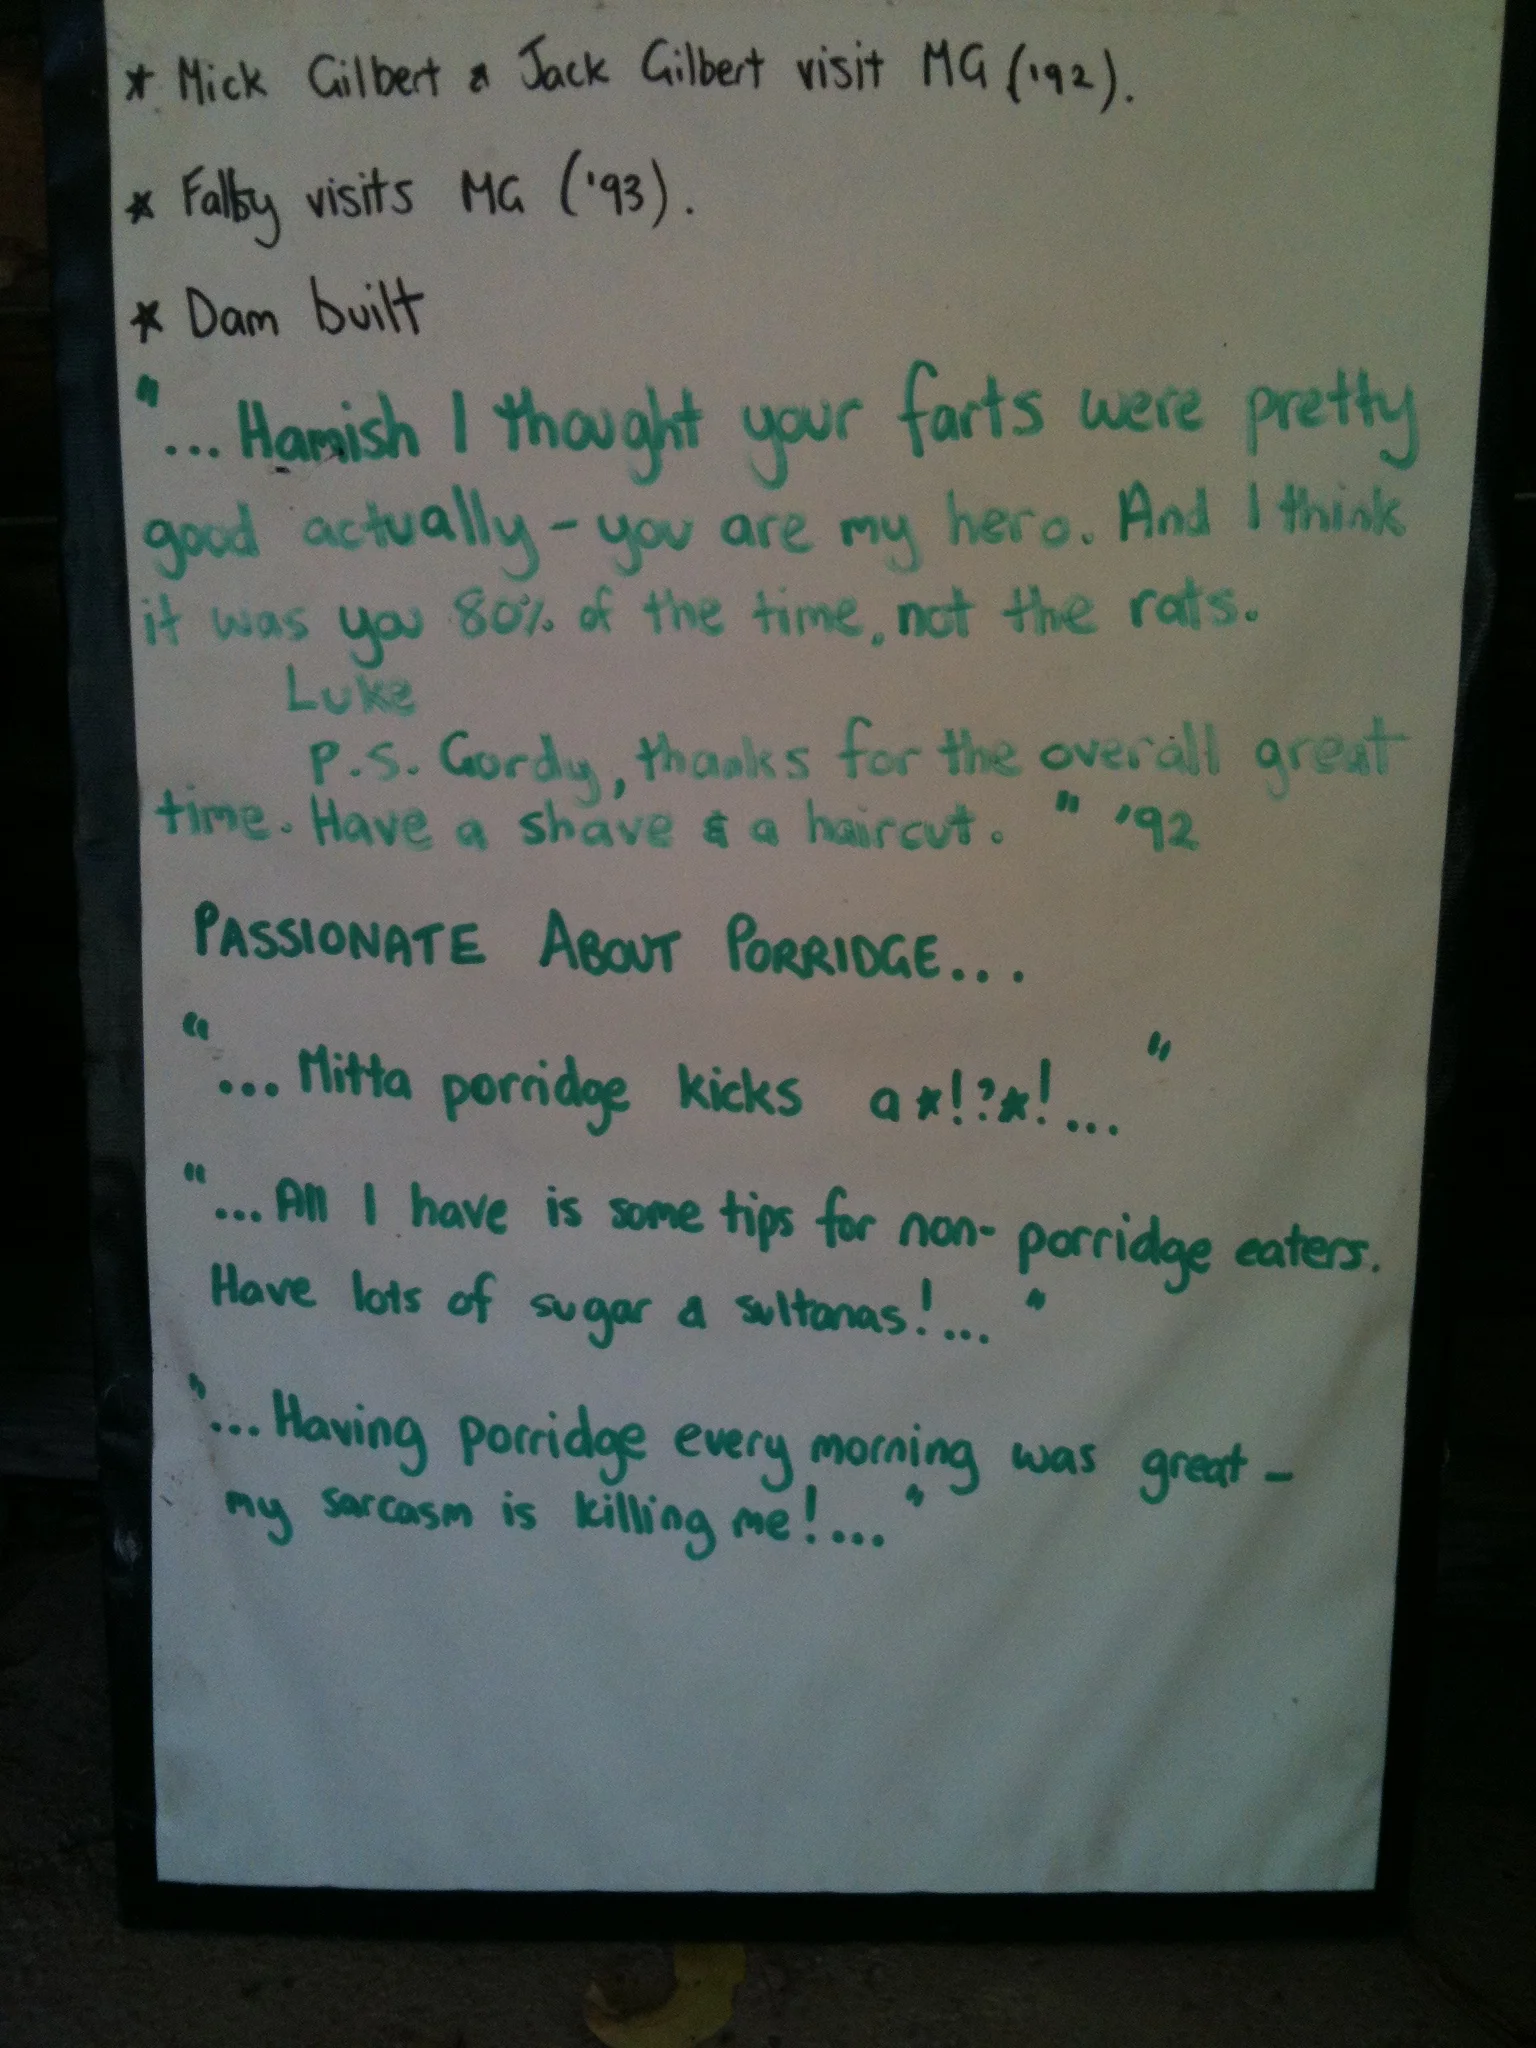 * Mick Gilbert & Jack Gilbert visit MG ('92).
* Falby visits MG ('93).
* Dam built
"... Hamish I thought your farts were pretty
good actually - you are my hero. And I think
it was you 80% of the time, not the rats.
Luke
P.S. Gordy, thanks for the overall great
time. Have a shave & a haircut. " '92
PASSIONATE ABOUT PORRIDGE...
"... Mitta porridge kicks a*!?*!... "
"... All I have is some tips for non- porridge eaters.
Have lots of sugar & sultanas!... "
"... Having porridge every morning was great -
my sarcasm is killing me!... "